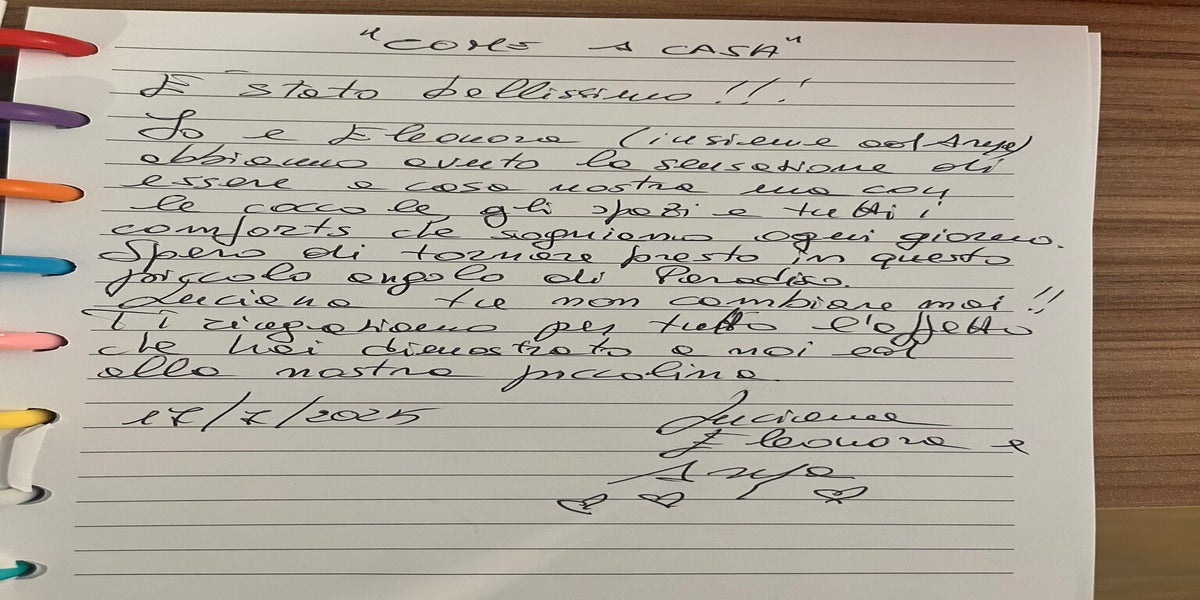 "COME A CASA"
È stato bellissimo!!!
Io e Eleonora (insieme ad Anya)
abbiamo avuto la sensazione di
essere a casa nostra ma con
le coccole, gli spazi e tutti i
comforts che sogniamo ogni giorno.
Spero di tornare presto in questo
piccolo angolo di Paradiso.
Luciana tu non cambiare mai!!
Ti ringraziamo per tutto l'affetto
che hai dimostrato a noi ed
alla nostra piccolina
17/7/2025 Luciana
Eleonora e
Anya